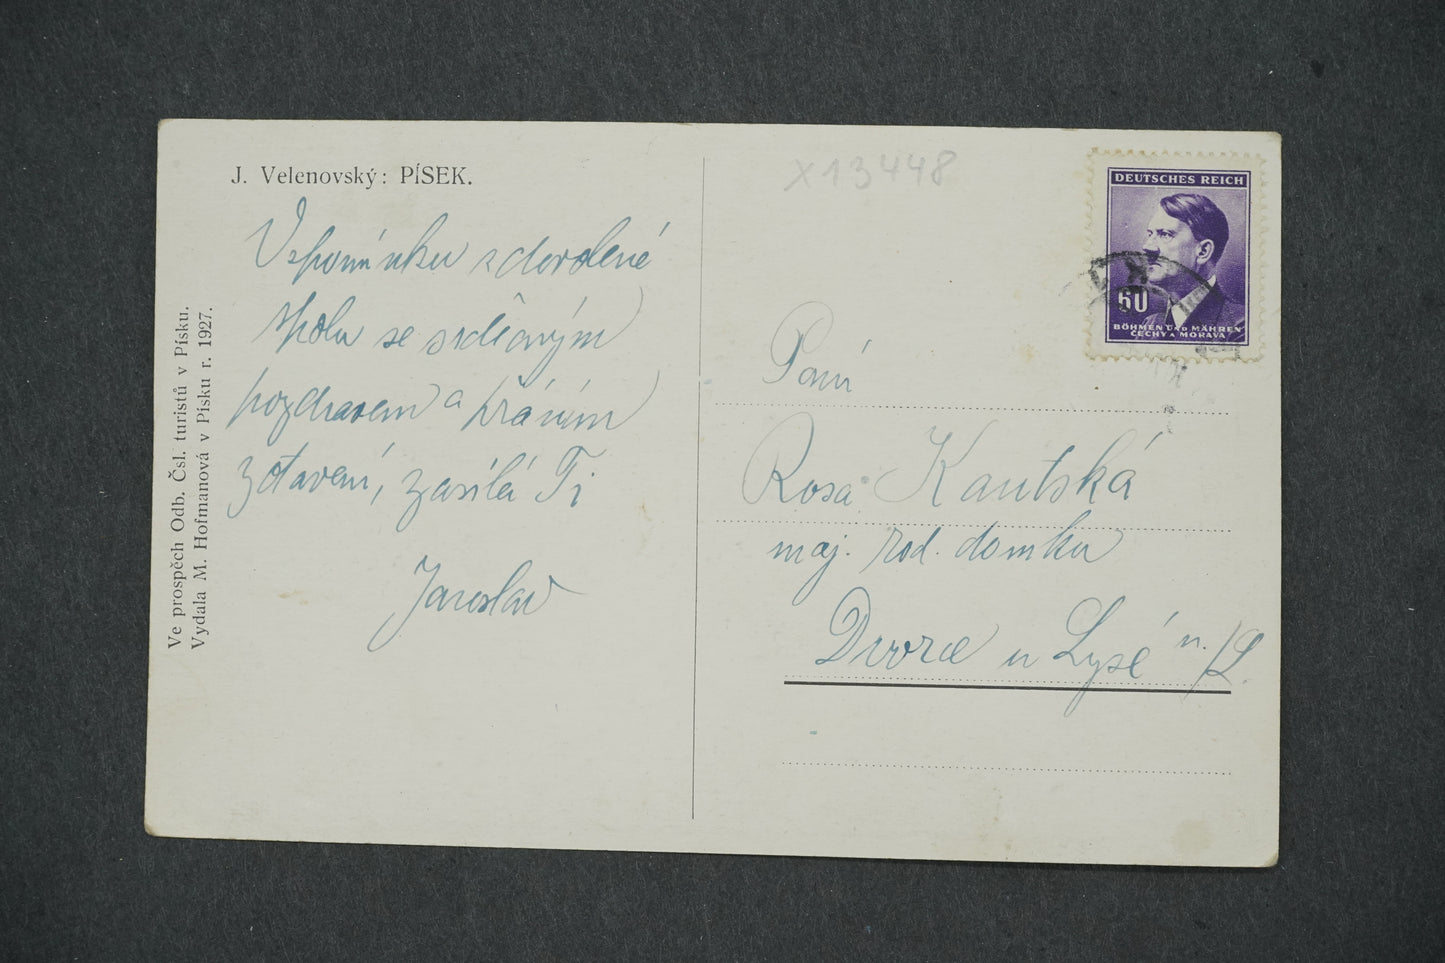 J. Velenovský: PÍSEK.
Vzpomínku z dovolené
spolu se srdečným
pozdravem a přáním
zotavení, zasílá Ti
Jaroslav
Ve prospěch Odb. Čsl. turistů v Písku.
Vydala M. Hofmanová v Písku r. 1927.
X13448
DEUTSCHES REICH
60
BÖHMEN UND MÄHREN
ČECHY A MORAVA
Paní
Rosa Kautská
maj. rod. domku
Dvorce u Lysé n./L.